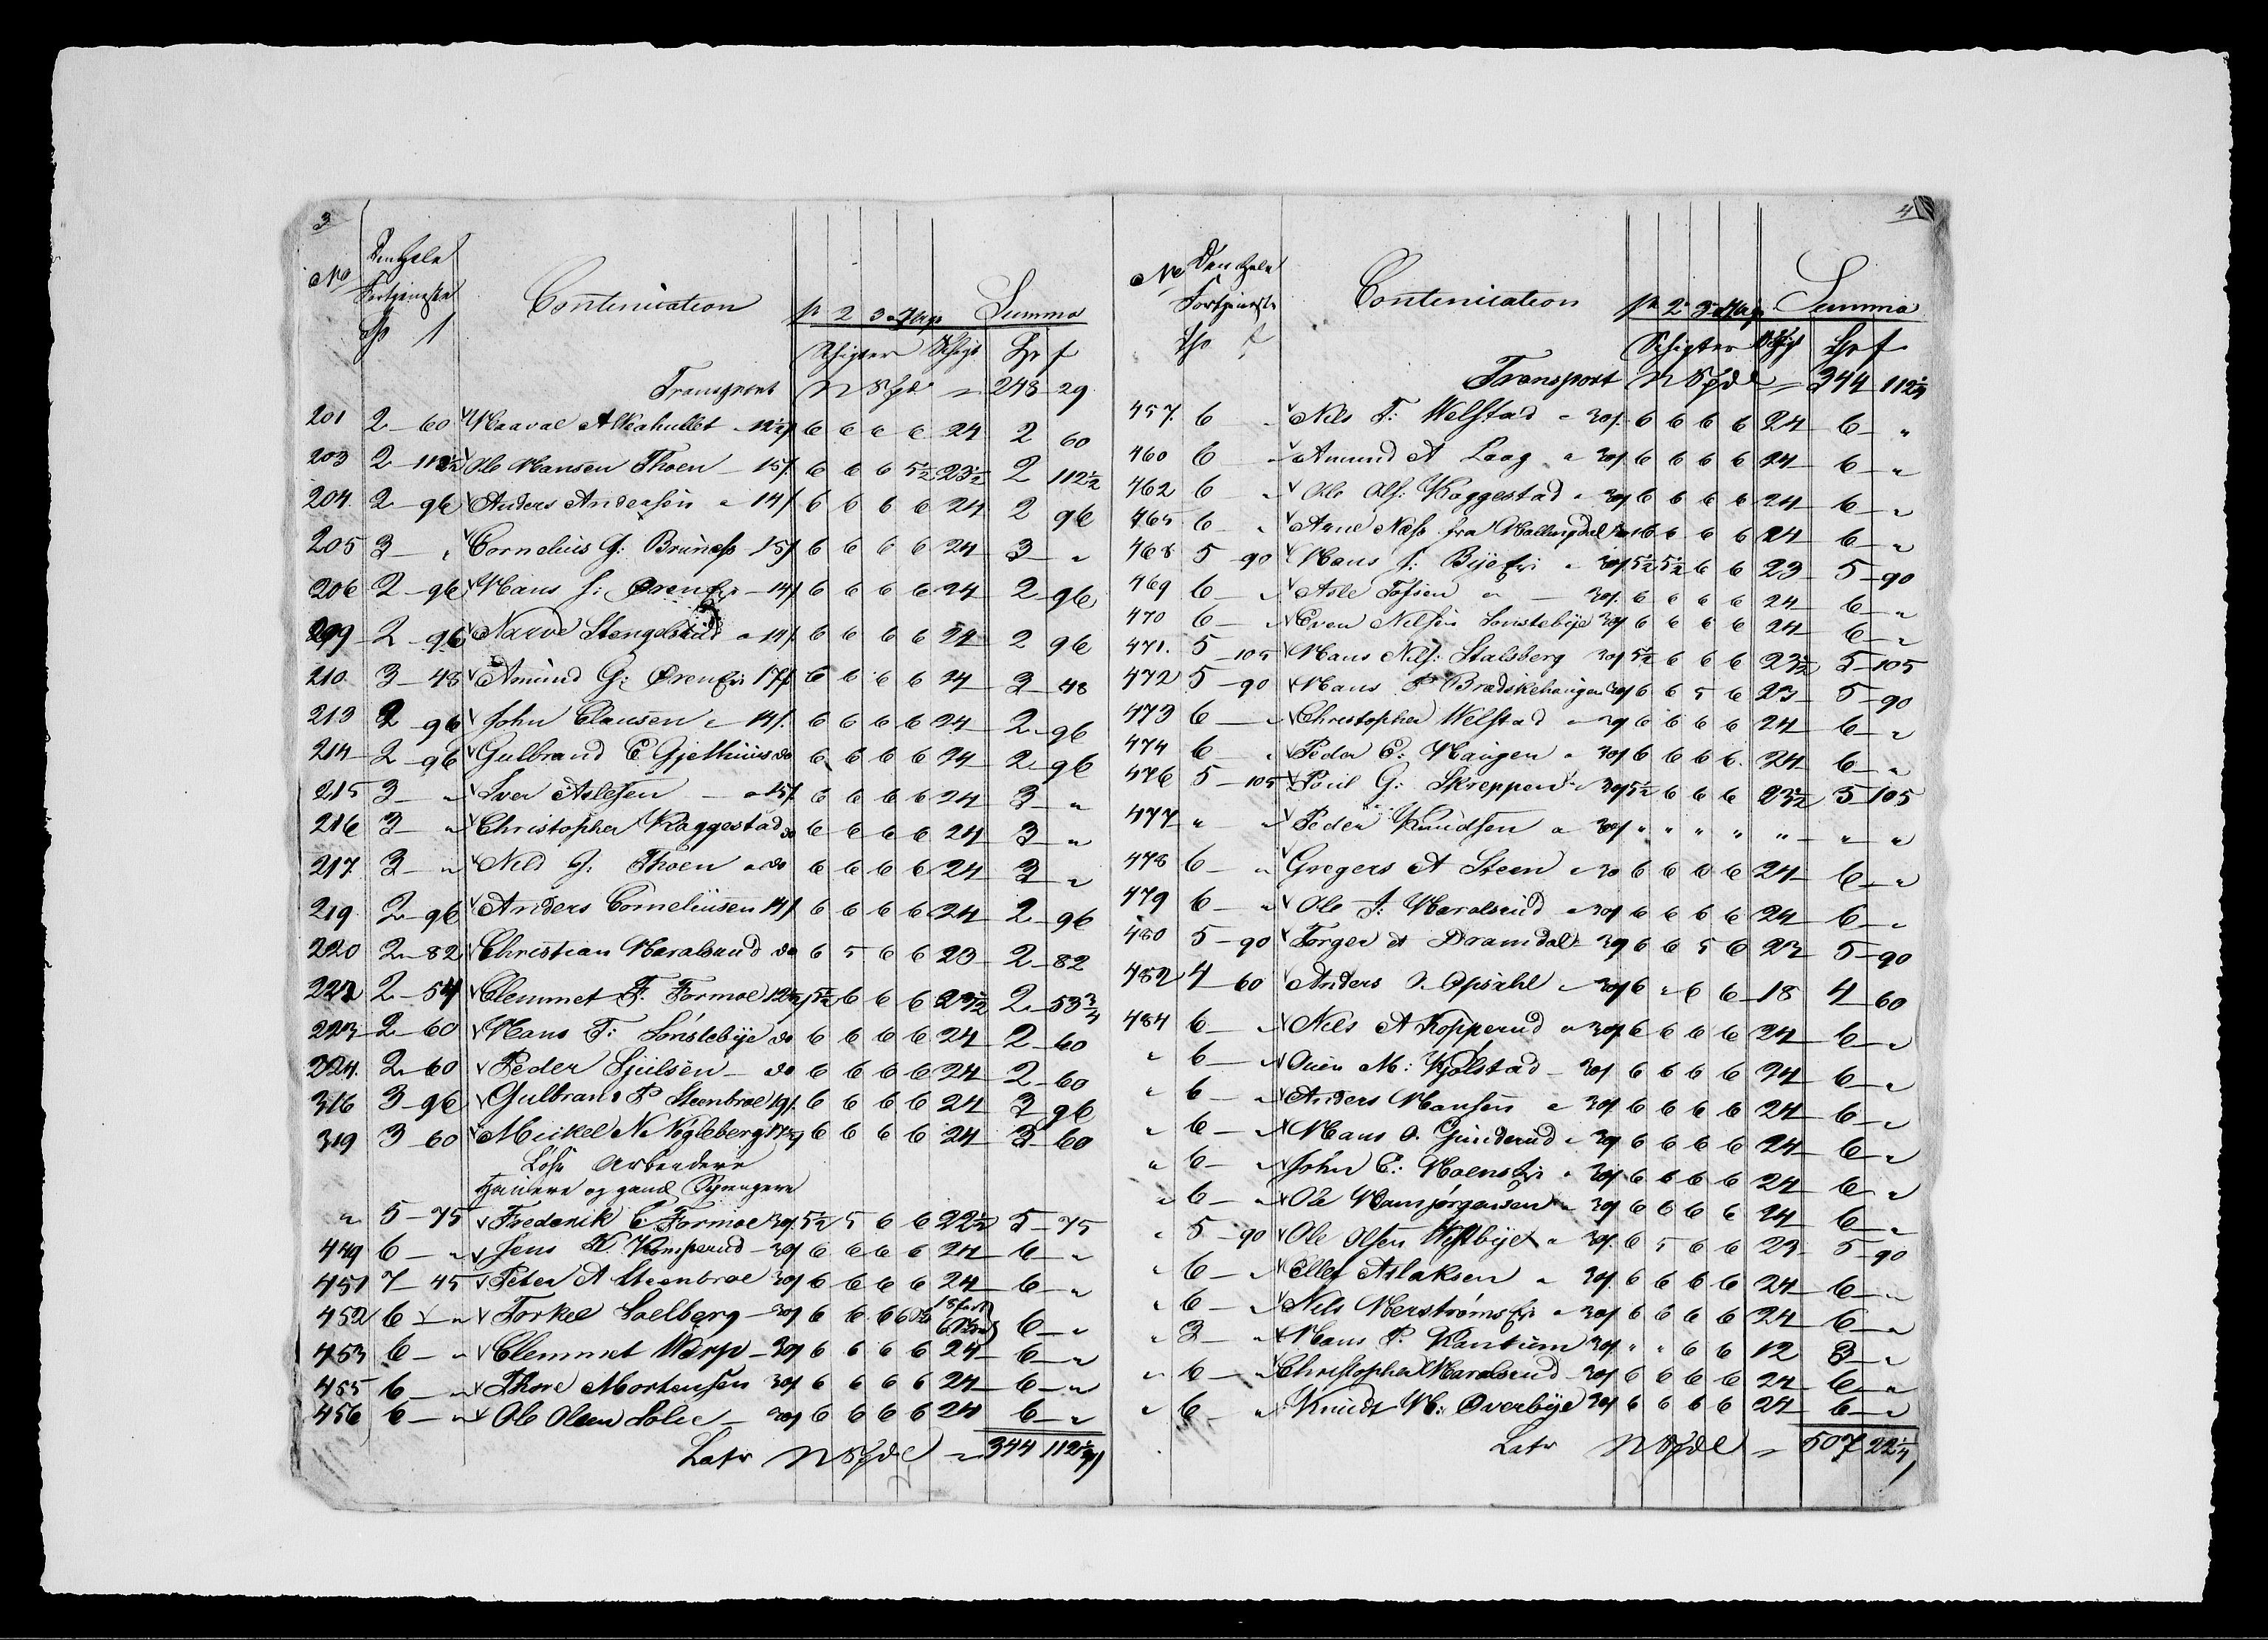 3
No Den hele Fortjeneste Contenuation 1ste 2 3 4 Uge Summa
Sp ſ Schigter Schigt Sp ſ
Transport 248 29
201 2 60 Haavae A Viahullet 12½ſ 6 6 6 6 24 2 60
203 2 112½ Ole Hansen Thoen 15ſ 6 6 6 5½ 23½ 2 112½
204 2 96 Anders Andersen 14ſ 6 6 6 6 24 2 96
205 3 " Cornelius G: Brunæs 15ſ 6 6 6 6 24 3 "
206 2 96 Hans J: Ørenei 14ſ 6 6 6 6 24 2 96
209 2 96 Narve Stengelsrud 14ſ 6 6 6 6 24 2 96
210 3 48 Amund G: Ørenei 17ſ 6 6 6 6 24 3 48
213 2 96 John Clausen 14ſ 6 6 6 6 24 2 96
214 2 96 Gulbrand E Gjethuus do 6 6 6 6 24 2 96
215 3 " Iver Aslesen 15ſ 6 6 6 6 24 3 "
216 3 " Christopher Kaggestad do 6 6 6 6 24 3 "
217 3 " Nils J: Thoen do 6 6 6 6 24 3 "
219 2 96 Anders Corneliusen 14ſ 6 6 6 6 24 2 96
220 2 82 Christian Haralsrud do 6 5 6 6 23 2 82
222 2 54 Clemmet F: Formoe 12½ſ 5½ 6 6 6 23½ 2 53¾
223 2 60 Hans T: Lonslebye do 6 6 6 6 24 2 60
224 2 60 Peder Sjulsen do 6 6 6 6 24 2 60
316 3 96 Gulbran P Steenbroe 19ſ 6 6 6 6 24 3 96
319 3 60 Mickel N Nögleberg 17½ſ 6 6 6 6 24 3 60
Löse Arbeidere
Hauere og gaml Sprengere
" 5 75 Frederik C: Formoe 30ſ 5½ 5 6 6 22½ 5 75
449 6 " Jens K: Komperud 30ſ 6 6 6 6 24 6 "
451 7 45 Peter A Steenbroe 30ſ 6 6 6 6 24 6 "
452 6 " Torkel Soelberg 30ſ 6 6 6 6 18 6 6 "
453 6 " Clemmet Warp 30ſ 6 6 6 6 24 6 "
455 6 " Thore Mortensen 30ſ 6 6 6 6 24 6 "
456 6 " Ole Olsen Solie 30ſ 6 6 6 6 24 6 "
Latr 344 112¼
4
No Den hele Fortjeneste Contenuation 1ste 2 3 4 Uge Summa
Sp ſ Schigter Schigt Sp ſ
Transport 344 112¼
457 6 " Nils T: Welstad 30ſ 6 6 6 6 24 6 "
460 6 " Amund A Laag 30ſ 6 6 6 6 24 6 "
462 6 " Ole Ols: Kaggestad 30ſ 6 6 6 6 24 6 "
465 6 " Arne Næss fra Hallingdal 6 6 6 6 24 6 "
468 5 90 Hans J: Byeei 30ſ 5½ 5½ 6 6 23 5 90
469 6 " Asle Tofsen 30ſ 6 6 6 6 24 6 "
470 6 " Even Nilsen Lonslebye 30ſ 6 6 6 6 24 6 "
471 5 105 Hans Nils: Stalsberg 30ſ 5½ 6 6 6 23½ 5 105
472 5 90 Hans P Brædskehaugen 30ſ 6 6 5 6 23 5 90
473 6 " Christopher Welstad 30ſ 6 6 6 6 24 6 "
474 6 " Peder E: Haugen 30ſ 6 6 6 6 24 6 "
476 5 105 Poul G: Skreppen 30ſ 5½ 6 6 6 23½ 5 105
477 " " Peder Knudsen 30ſ " " " " " " "
478 6 " Gregers A Steen 30 6 6 6 6 24 6 "
479 6 " Ole J: Haralsrud 30ſ 6 6 6 6 24 6 "
480 5 90 Torger A Dramdal 30ſ 6 6 5 6 23 5 90
482 4 60 Anders O. Opsahl 30ſ 6 " 6 6 18 4 60
484 6 " Nils A Kopperud 30ſ 6 6 6 6 24 6 "
" 6 " Ouen M: Kjölstad 30ſ 6 6 6 6 24 6 "
" 6 " Anders Hansen 30ſ 6 6 6 6 24 6 "
" 6 " Hans O. Gunderud 30ſ 6 6 6 6 24 6 "
" 6 " John E: Hoensei 30ſ 6 6 6 6 24 6 "
" 6 " Ole Hansjörgensen 30ſ 6 6 6 6 24 6 "
" 5 90 Ole Olsen Westbye 30ſ 6 5 6 6 23 5 90
" 6 " Ellef Aslaksen 30ſ 6 6 6 6 24 6 "
" 6 " Nils Herströmsei 30ſ 6 6 6 6 24 6 "
" 3 " Hans P. Kantum 30ſ " " 6 6 12 3 "
" 6 " Christopher Haralsrud 30ſ 6 6 6 6 24 6 "
" 6 " Knudt H: Overbye 30ſ 6 6 6 6 24 6 "
Latr 507 22¼